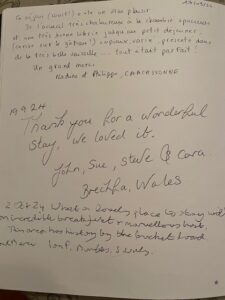 Ce séjour (court!) a été un vrai plaisir
De l'accueil très chaleureux à la chambre spacieuse
et une très bonne literie jusqu'au petit déjeuner
(cerise sur le gâteau!) copieux, varié, présenté dans
de la très belle vaisselle... tout était parfait!
Un grand merci
Nadine et Philippe, CARCASSONNE
19.9.24
Thank you for a wonderful
stay, we loved it.
John, Sue, Steve & Cara.
Brechfa, Wales
2 Oct 24 What a lovely place to stay with
an incredible breakfast & marvellous host.
This area has history by the bucket load